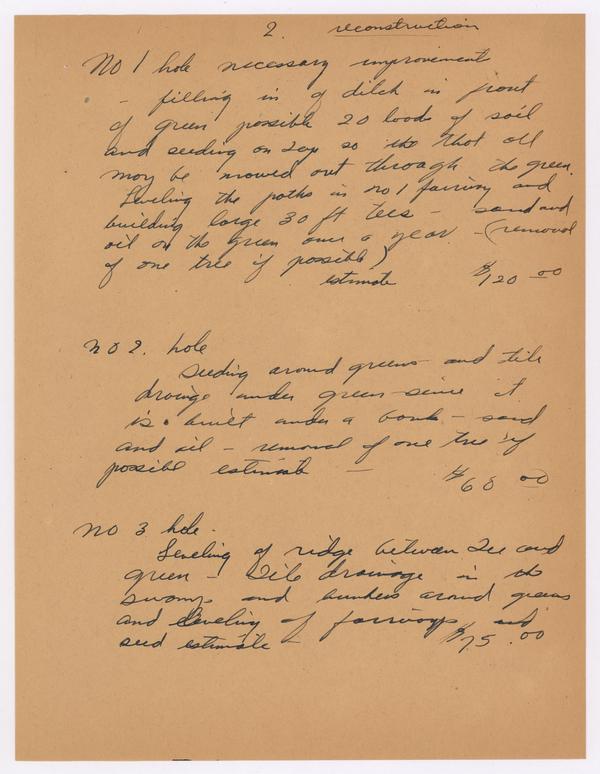 2. reconstruction
No 1 hole necessary improvement
- filling in of ditch in front
of green possible 20 loads of soil
and seeding on top so that all
may be mowed out through the green.
Leveling the paths in no 1 fairway and
building large 30 ft tees - sand and
oil on the green once a year - (removal
of one tree if possible)
estimate $120 00
no 2. hole
Seeding around greens and tile
drainge under green since it
is built under a bank - sand
and oil - removal of one tree if
possible estimate - $68 00
no 3 hole.
Leveling of ridge between Tee and
green - Tile drainage in the
swamp and bunkers around greens
and leveling of fairways and
seed estimate - $75.00